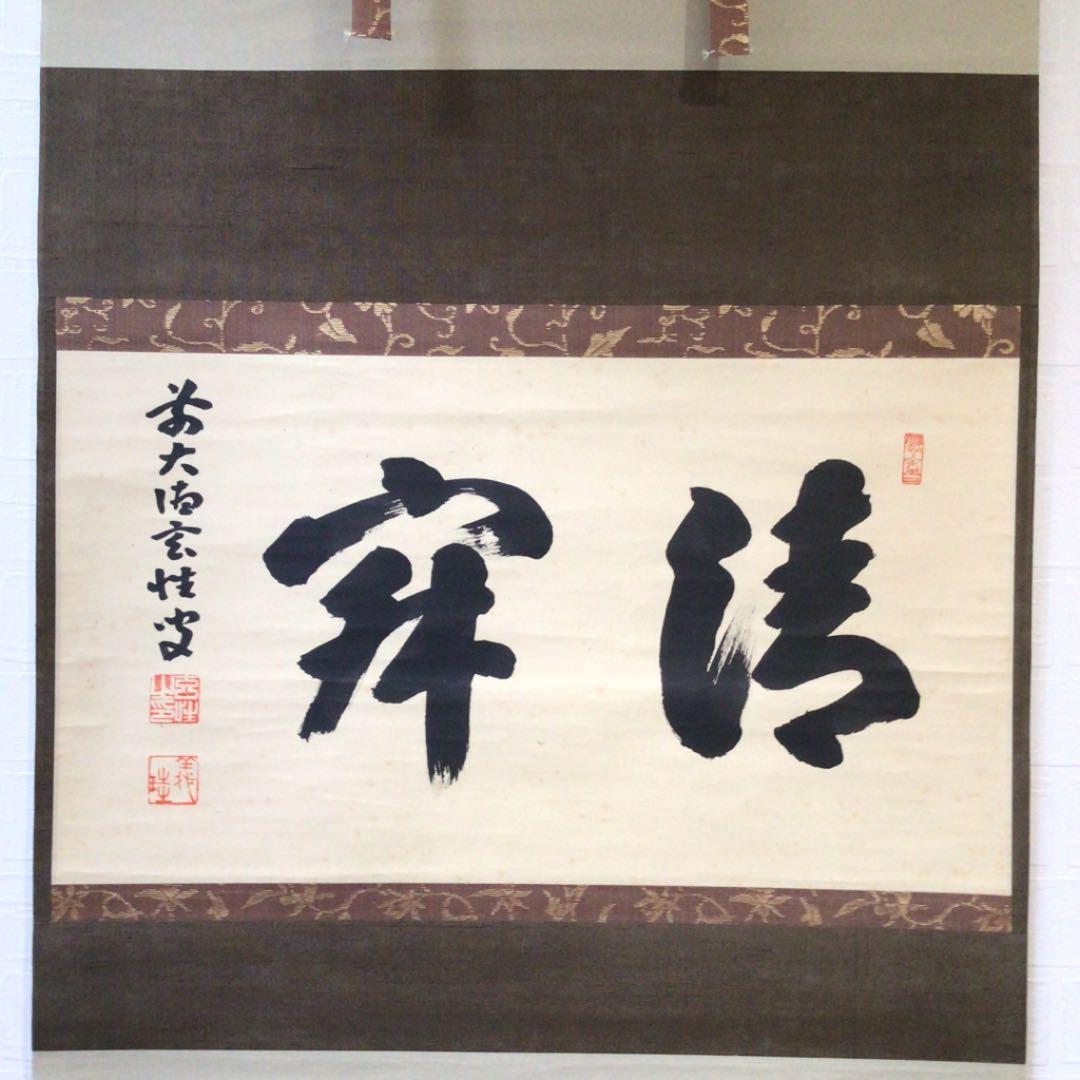 清寂
前大徳玄性叟